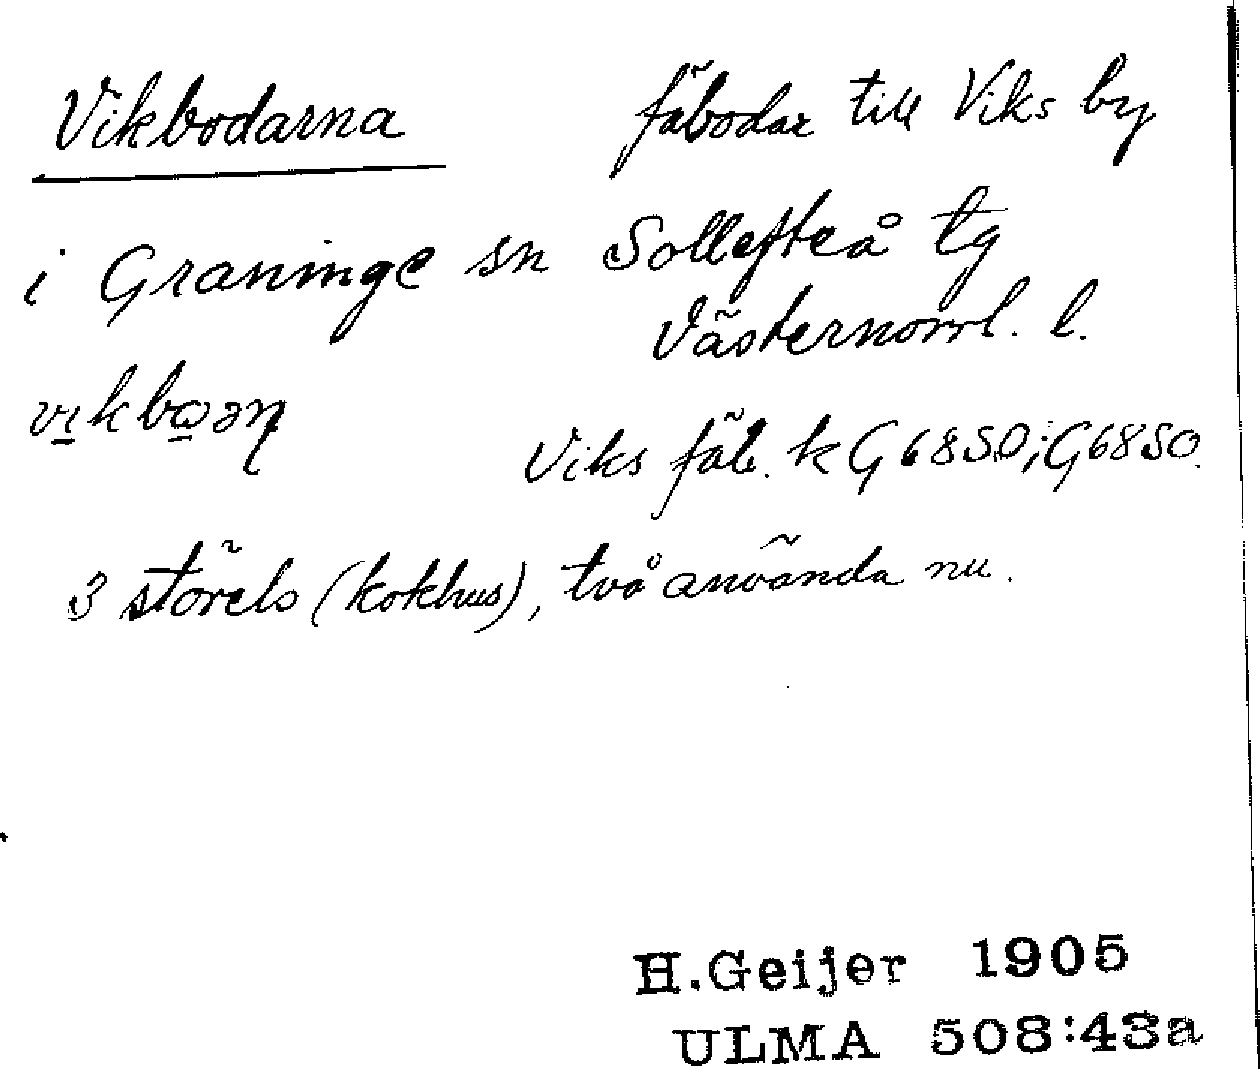 Vikbodarna fäbodar till Viks by
i Graninge sn Sollefteå tg
Västernorrl. l.
Viks fäb. k G 6850; G 6850.
3 störels (kokhus), två använda nu.
H.Geijer 1905
ULMA 508:43a